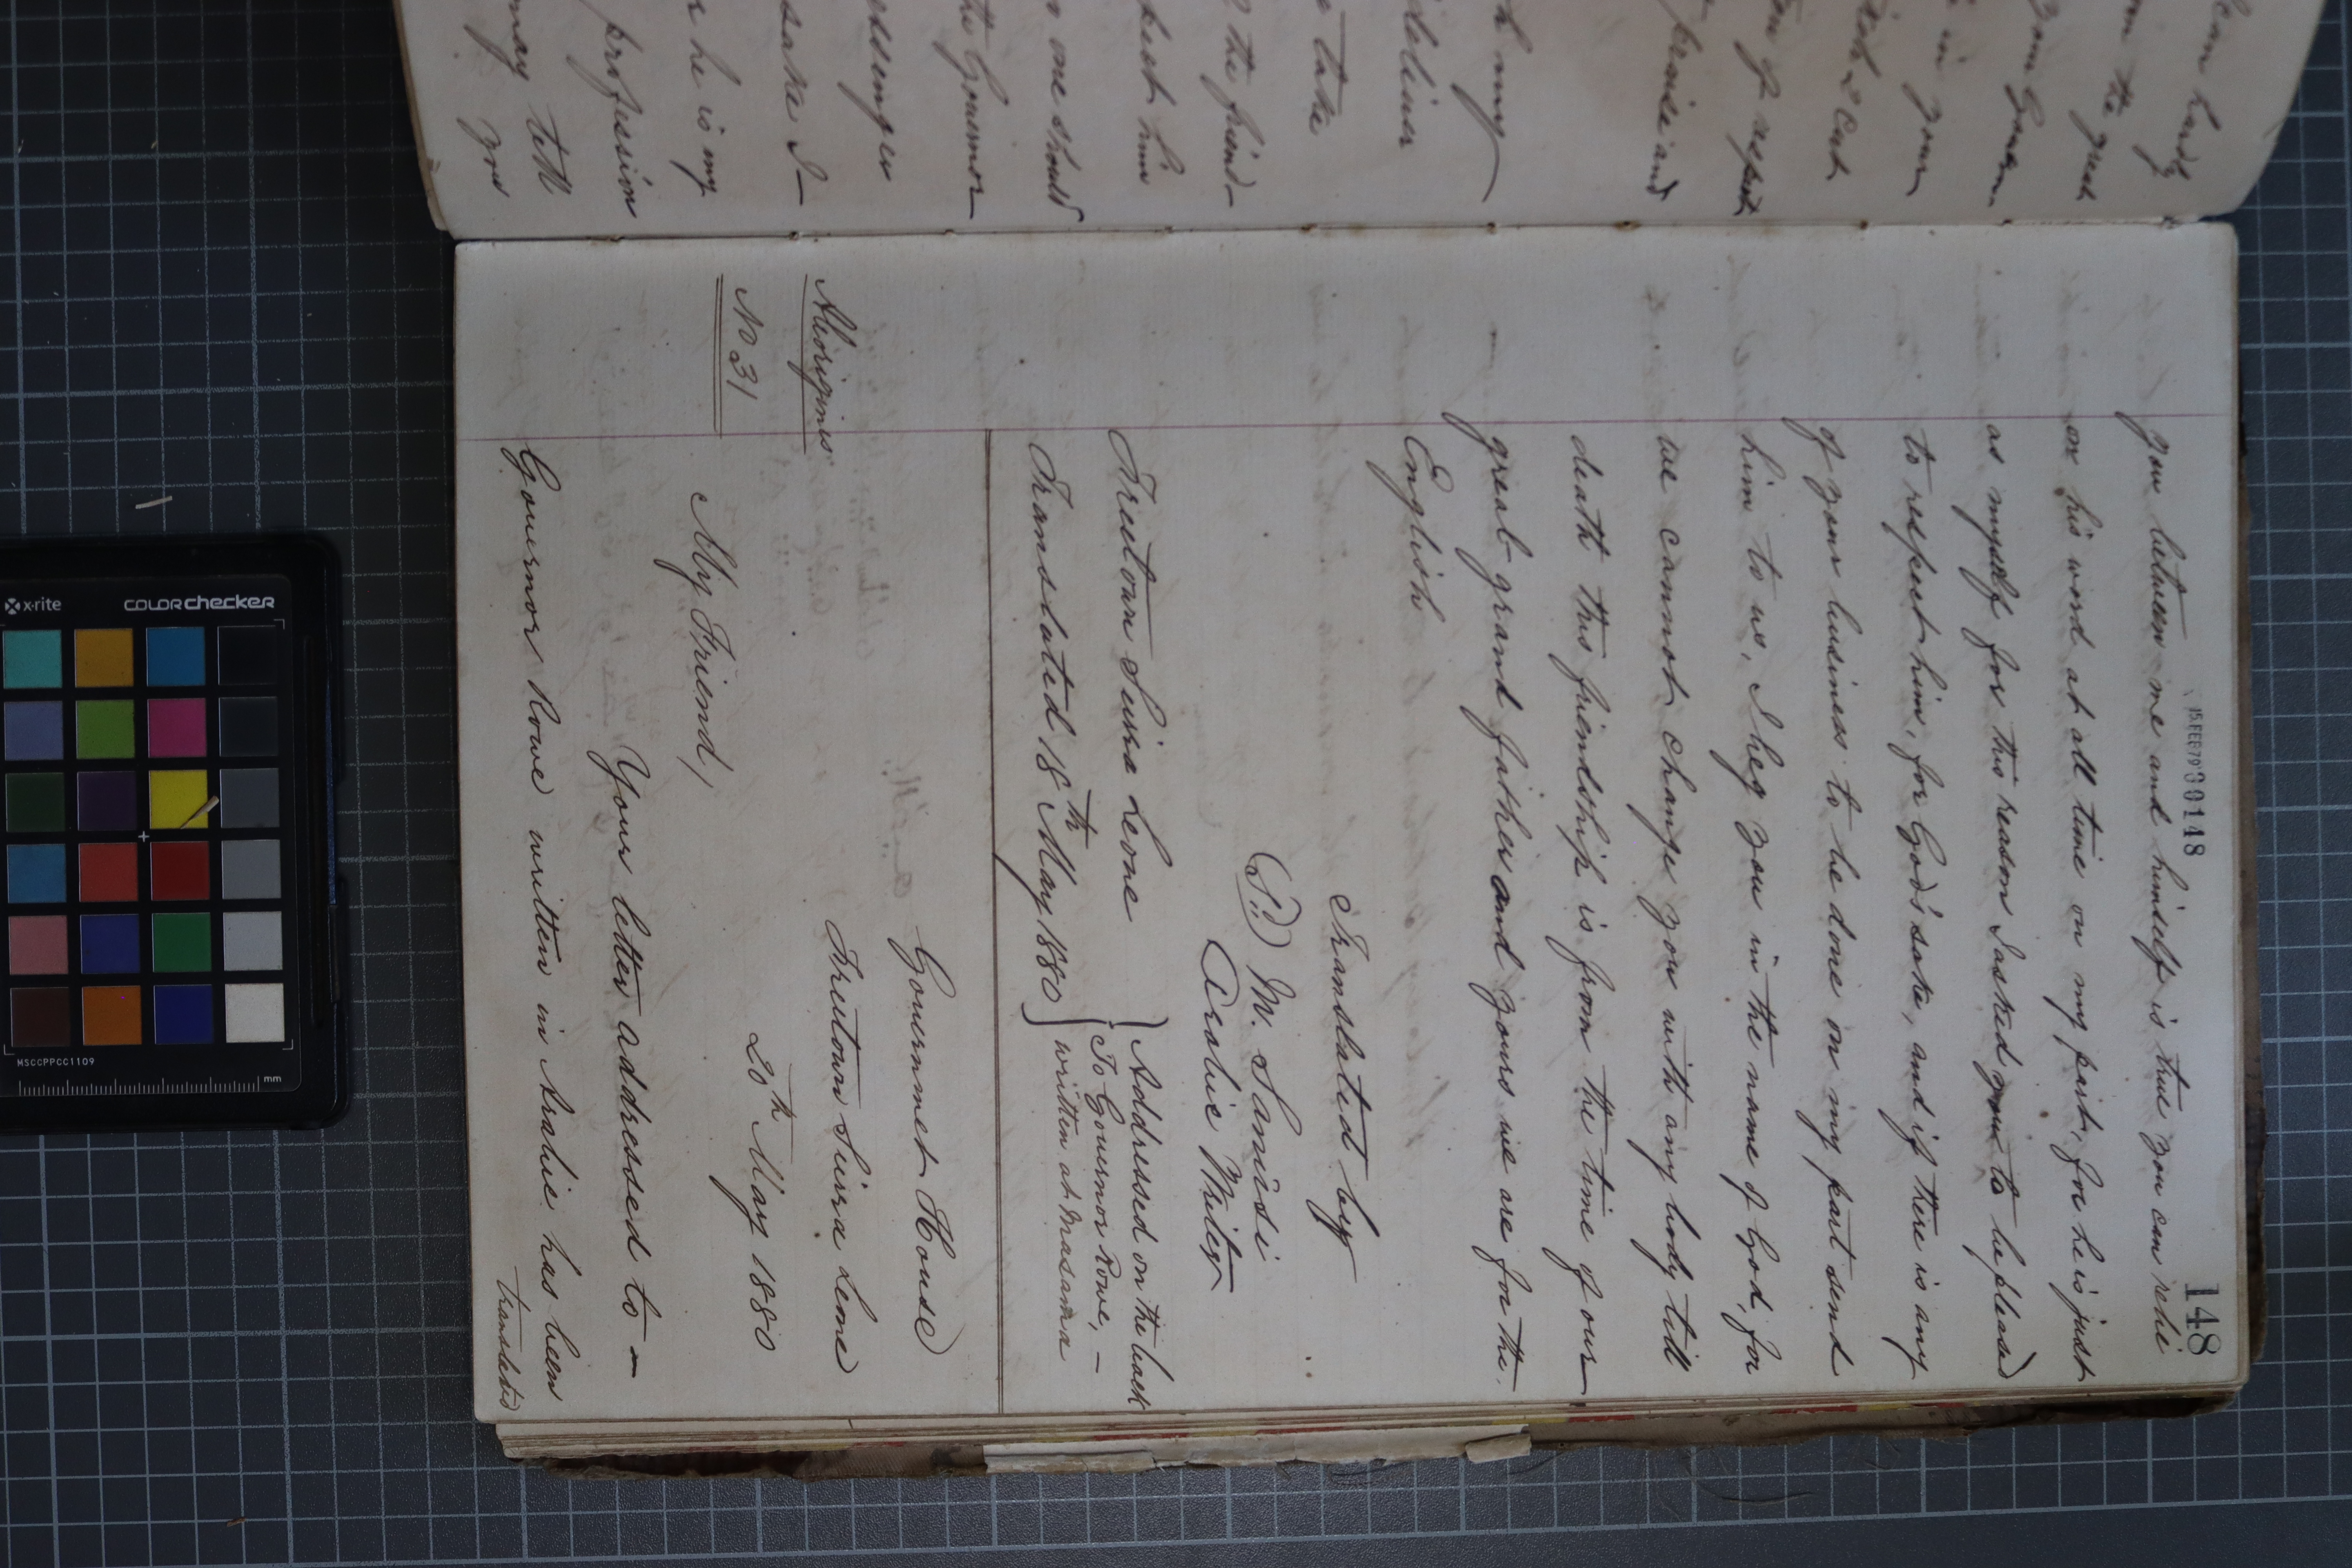 148
15 FEB 79 30148
you between me and himself is true you can relie
on his word at all time on my part, for he is just
as myself for this reason I asked you to be pleased
to respect him, for God's sake, and if there is any
of your business to be done on my part send
him to us, I beg you in the name of God, for
we cannot change you with any body till
death this friendship is from the time of our
great grand fathers and yours we are for the
English
Translated by
(S.) M. Sanisi
Arabic Writer
Freetown Sierra Leone
Translated 18th May 1880
Addressed on the back
To Governor Rowe, —
written at Masama
Government House
Freetown Sierra Leone
20th May 1880
Aborigines
No 31
My Friend,
Your letter addressed to —
Governor Rowe written in Arabic has been
translated
can hardly
the great
in your
of respect
praise and
my
deliver
take
the friend-
him
one should
Governor
Messenger
sake I—
he is my
profession
may tell
you